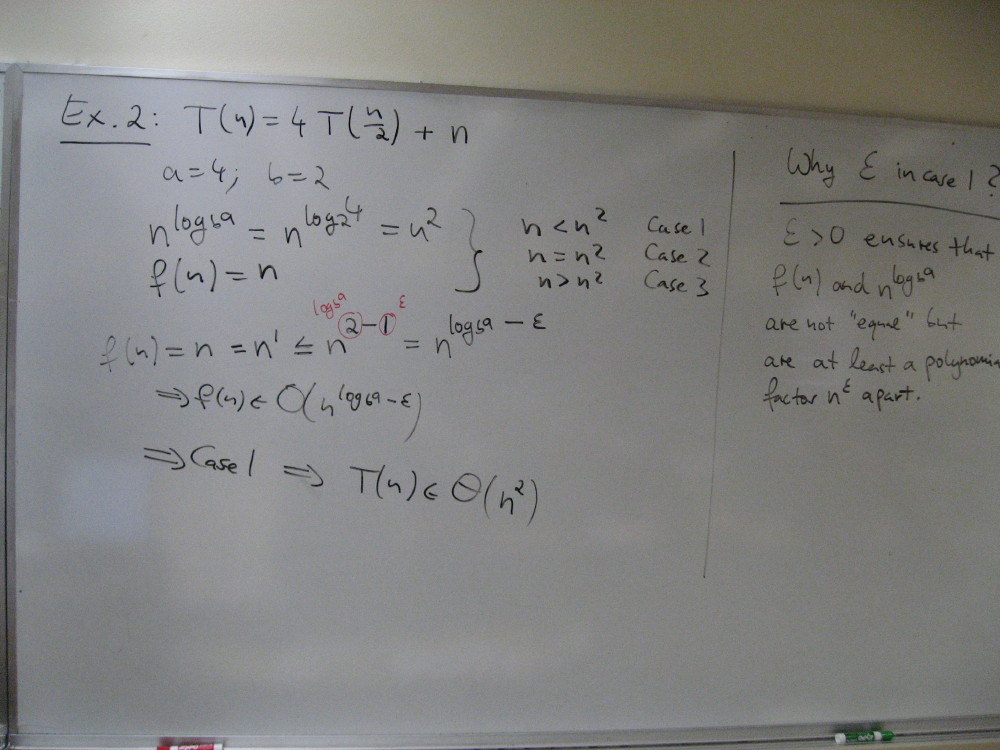 Ex. 2: T(n) = 4 T(n/2) + n
a=4; b=2
n^{log_b a} = n^{log_2 4} = n^2
f(n) = n
n < n^2 Case 1
n = n^2 Case 2
n > n^2 Case 3
log_b a ε
f(n) = n = n^1 ≤ n^{2-1} = n^{log_b a - ε}
⇒ f(n) ∈ O(n^{log_b a - ε})
⇒ Case 1 ⇒ T(n) ∈ Θ(n^2)
Why ε in case 1?
ε>0 ensures that
f(n) and n^{log_b a}
are not "equal" but
are at least a polynomia
factor n^ε apart.